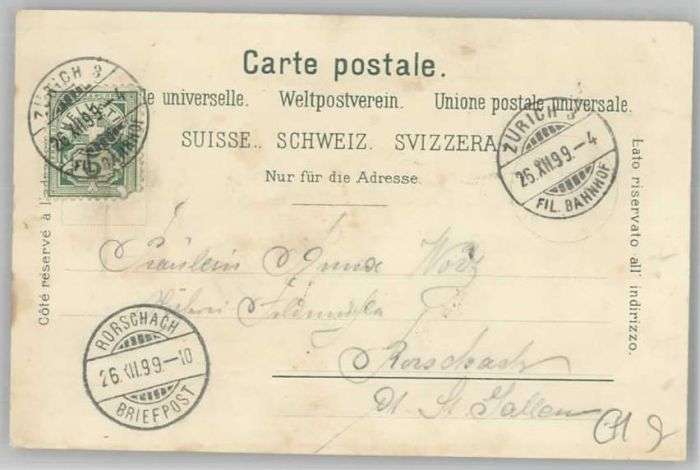 Carte postale.
le universelle. Weltpostverein. Unione postale universale.
SUISSE. SCHWEIZ. SVIZZERA.
Nur für die Adresse.
Côté réservé à l'adresse
Lato riservato all' indirizzo.
ZÜRICH 3
26.XII.99.-4
FIL. BAHNHOF
ZÜRICH 3
26.XII.99.-4
FIL. BAHNHOF
5
RORSCHACH
26.XII.99.-10
BRIEFPOST
Fräulein Anna
Rorschach
Ct St Gallen
CH